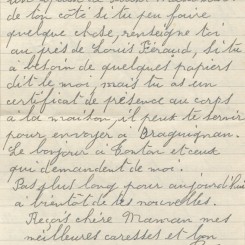 de ton côté si tu peux faire
quelque chose, renseigne toi
au près de Louis Féraud, si tu
a besoin de quelques papiers
dit le moi mais tu as un
certificat de présence au corps
a la maison, il peut te servir
pour envoyer a Draguignan.
Le bonjour a Tonton et ceux
qui demandent de moi.
Pas plus long pour aujourd'hui
a bientôt de tes nouvelles.
Reçois chère Maman mes
meilleures caresses et ton